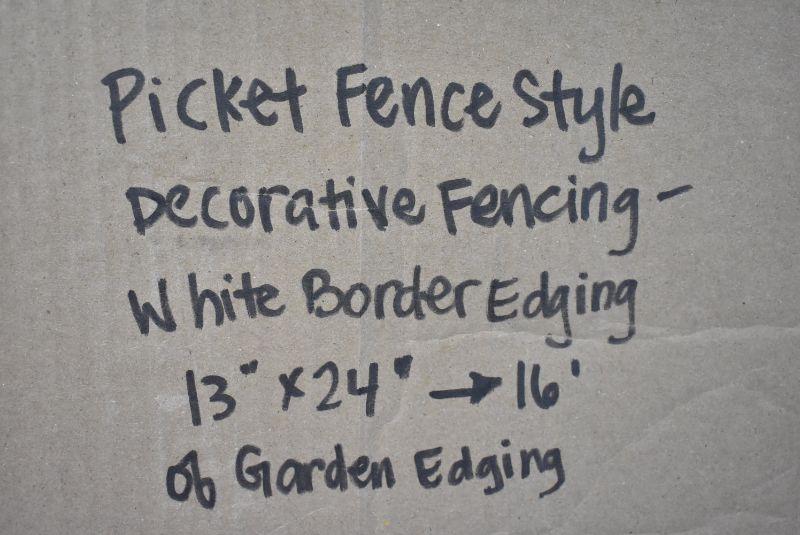 Picket Fence Style
Decorative Fencing -
White Border Edging
13" x 24" → 16'
of Garden Edging